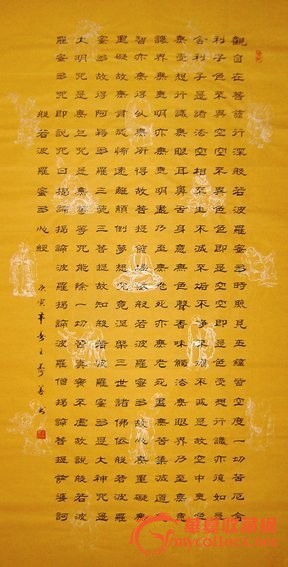 觀自在菩薩行深般若波羅蜜多時照見五蘊皆空度一切苦厄舍
利子色不異空空不異色色即是空空即是色受想行識亦復如是
舍利子是諸法空相不生不滅不垢不淨不增不減是故空中無色
無受想行識無眼耳鼻舌身意無色聲香味觸法無眼界乃至無意
識界無無明亦無無明盡乃至無老死亦無老死盡無苦集滅道無
智亦無得以無所得故菩提薩埵依般若波羅蜜多故心無罣礙無
罣礙故無有恐怖遠離顛倒夢想究竟涅槃三世諸佛依般若波羅
蜜多故得阿耨多羅三藐三菩提故知般若波羅蜜多是大神咒是
大明咒是無上咒是無等等咒能除一切苦真實不虛故說般若波
羅蜜多咒即說咒曰揭諦揭諦波羅揭諦波羅僧揭諦菩提薩婆訶
般若波羅蜜多心經
庚寅年